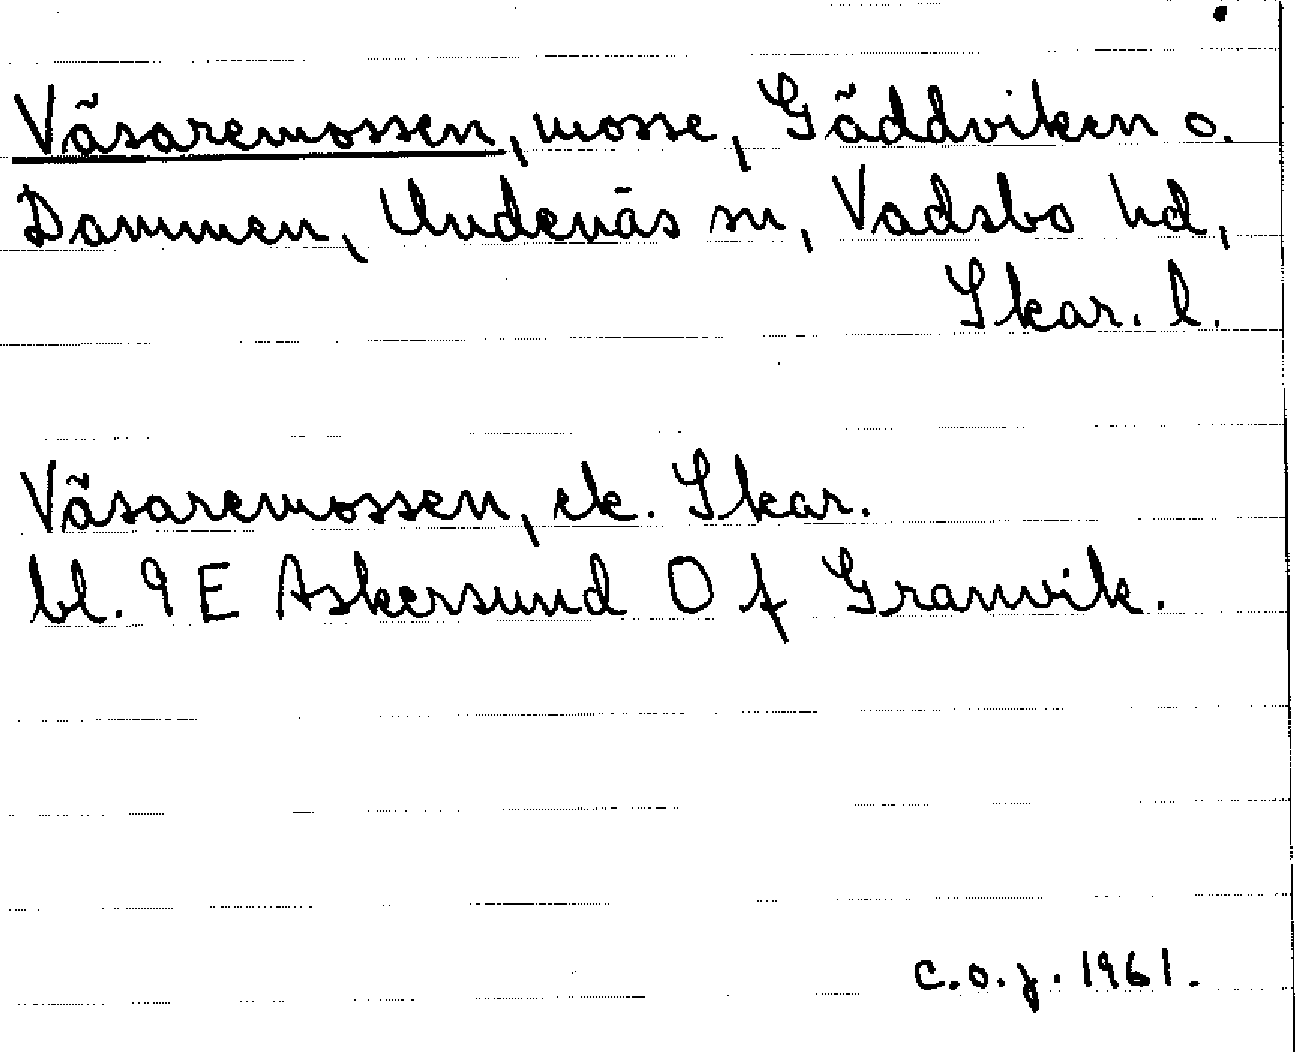 Väsaremossen, mosse, Gäddviken o.
Dammen, Undenäs sn, Vadsbo hd,
Skar. l.
Väsaremossen, ek. Skar.
bl. 9 E Askersund 0 f Granvik.
C.O.J. 1961.